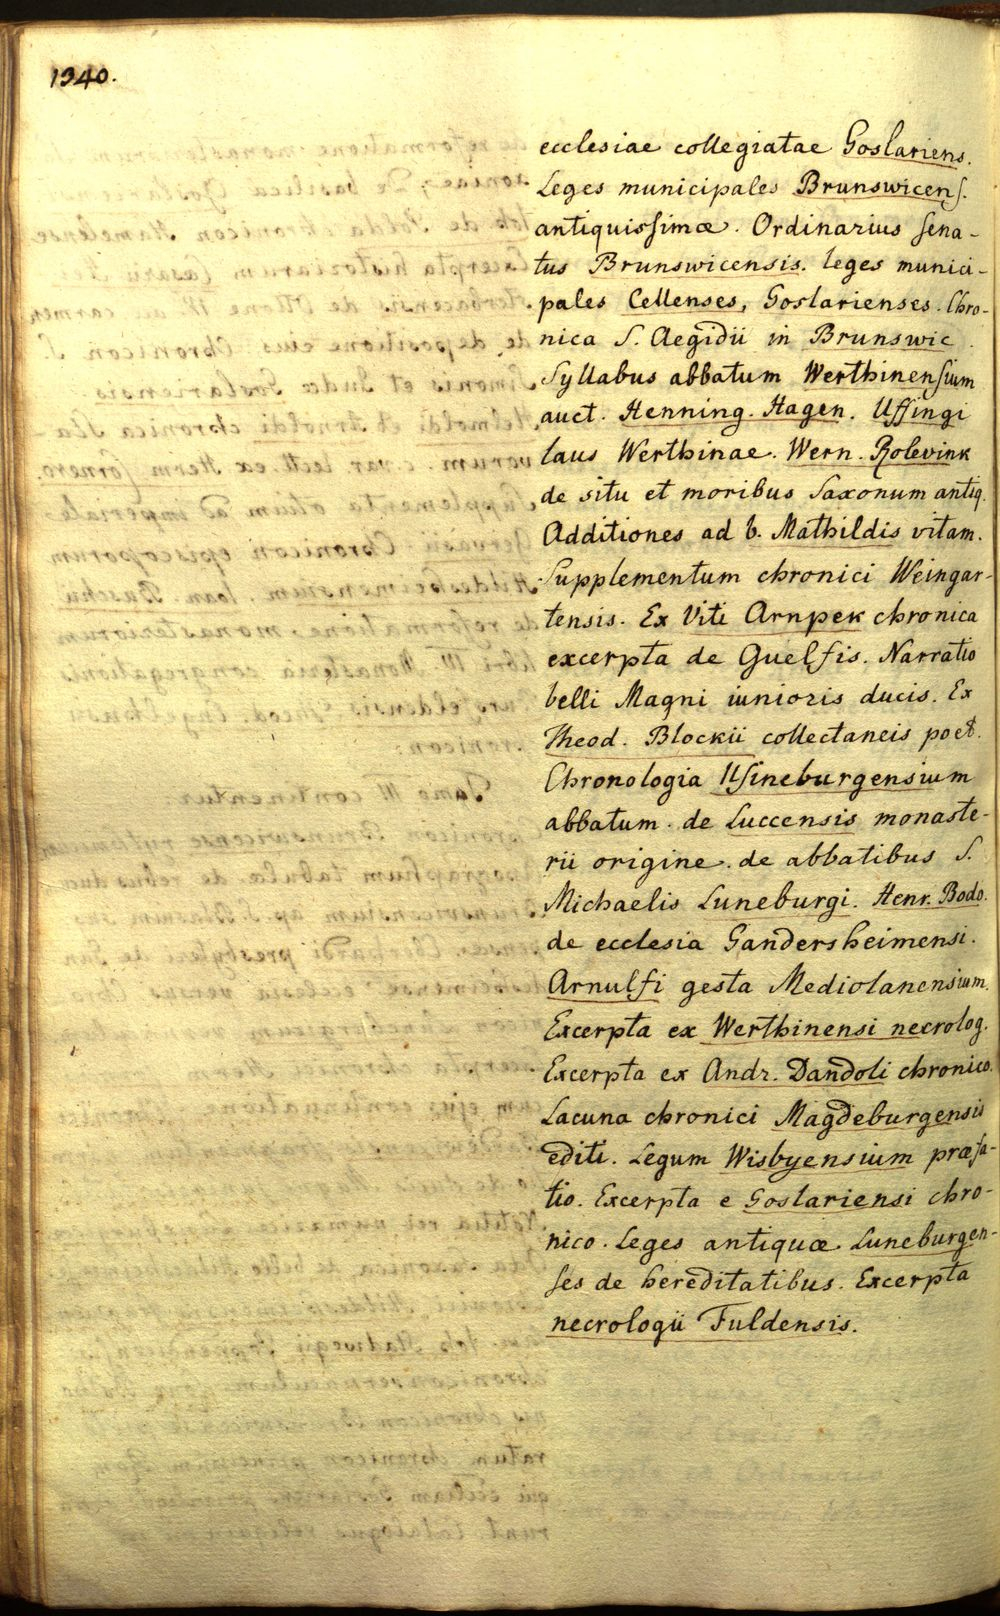 1340.
ecclesiae collegiatae Goslariens.
Leges municipales Brunswicenſ.
antiquisſimæ. Ordinarius ſena-
tus Brunswicensis. leges munici-
pales Cellenses, Goslarienses. Chro-
nica S. Aegidii in Brunswic.
Syllabus abbatum Werthinenſium
auct. Henning. Hagen. Uffingi
laus Werthinae. Wern. Rolevink
de situ et moribus Saxonum antiq.
Additiones ad b. Mathildis vitam.
Supplementum chronici Weingar-
tensis. Ex Viti Arnpek chronica
excerpta de Guelfis. Narratio
belli Magni iunioris ducis. Ex
Theod. Blockii collectaneis poet.
Chronologia Ilſineburgensium
abbatum. de Luccensis monaste-
rii origine. de abbatibus S.
Michaelis Luneburgi. Henr. Bodo.
de ecclesia Gandersheimensi.
Arnulfi gesta Mediolanensium.
Excerpta ex Werthinensi necrolog.
Excerpta ex Andr. Dandoli chronico.
Lacuna chronici Magdeburgensis
editi. Legum Wisbyensium præfa-
tio. Excerpta e Goslariensi chro-
nico. Leges antiquæ Luneburgen-
ſes de hereditatibus. Excerpta
necrologii Fuldensis.